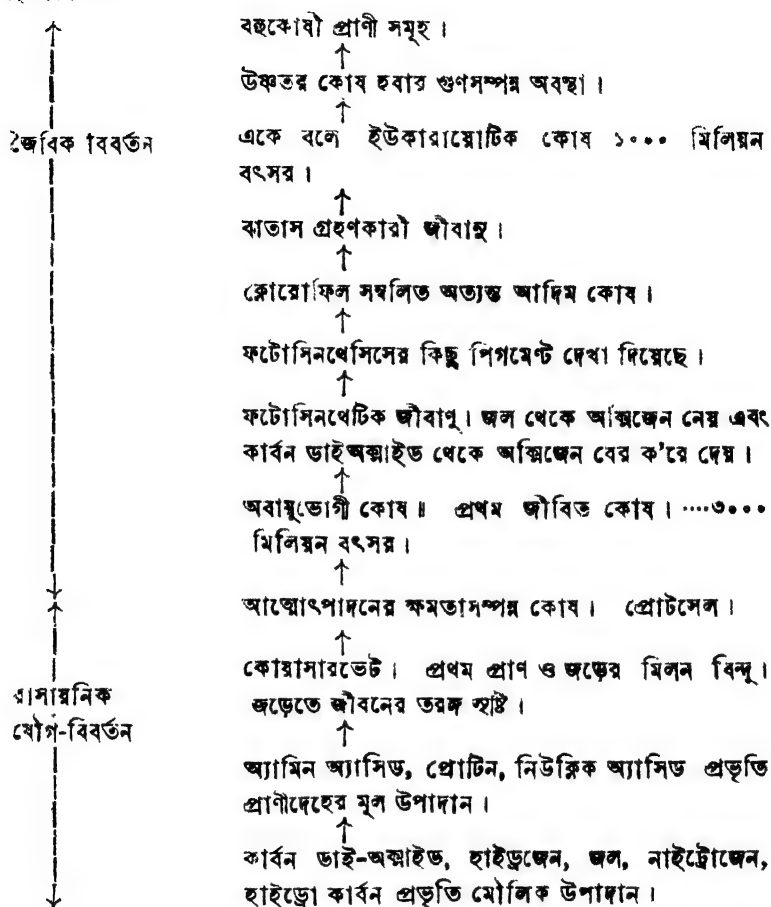 বহুকোষী প্রাণী সমূহ ।
উষ্ণতর কোষ হবার গুণসম্পন্ন অবস্থা ।
জৈবিক বিবর্তন
একে বলে ইউকারায়োটিক কোষ ১০০০ মিলিয়ন
বৎসর ।
বাতাস গ্রহণকারী জীবাণু ।
ক্লোরোফিল সম্বলিত অত্যন্ত আদিম কোষ ।
ফটোসিনথেসিসের কিছু পিগমেণ্ট দেখা দিয়েছে ।
ফটোসিনথেটিক জীবাণু । জল থেকে অক্সিজেন নেয় এবং
কার্বন ডাইঅক্সাইড থেকে অক্সিজেন বের ক'রে দেয় ।
অবায়ুভোগী কোষ ॥ প্রথম জীবিত কোষ । ····৩০০০
মিলিয়ন বৎসর ।
আত্মোৎপাদনের ক্ষমতাসম্পন্ন কোষ । প্রোটসেল ।
কোয়াসারভেট । প্রথম প্রাণ ও জড়ের মিলন বিন্দু ।
জড়েতে জীবনের তরঙ্গ সৃষ্টি ।
রাসায়নিক
যৌগ-বিবর্তন
অ্যামিন অ্যাসিড, প্রোটিন, নিউক্লিক অ্যাসিড প্রভৃতি
প্রাণীদেহের মূল উপাদান ।
কার্বন ডাই-অক্সাইড, হাইড্রজেন, জল, নাইট্রোজেন,
হাইড্রো কার্বন প্রভৃতি মৌলিক উপাদান ।